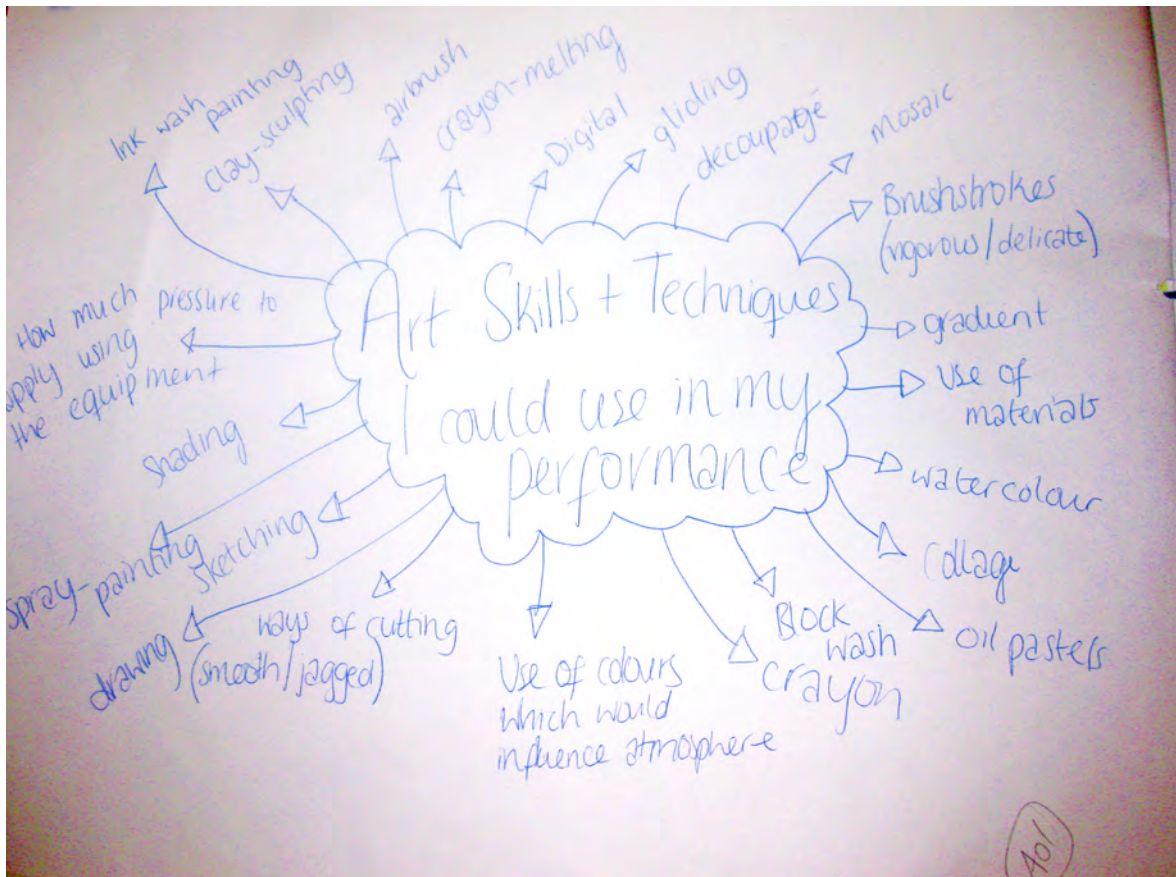 Art Skills + Techniques
I could use in my
performance
Ink wash
painting
clay-sculpting
airbrush
crayon-melting
Digital
gliding
decoupagé
mosaic
Brushstrokes
(vigorous/delicate)
gradient
Use of
materials
watercolour
Collage
oil pastels
Block
wash
crayon
Use of colours
which would
influence atmosphere
ways of cutting
(smooth/jagged)
drawing
sketching
spray-
painting
shading
How much pressure to
apply using
the equipment
AO1